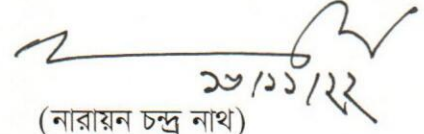 ১৬/১১/২২
(নারায়ন চন্দ্র নাথ)